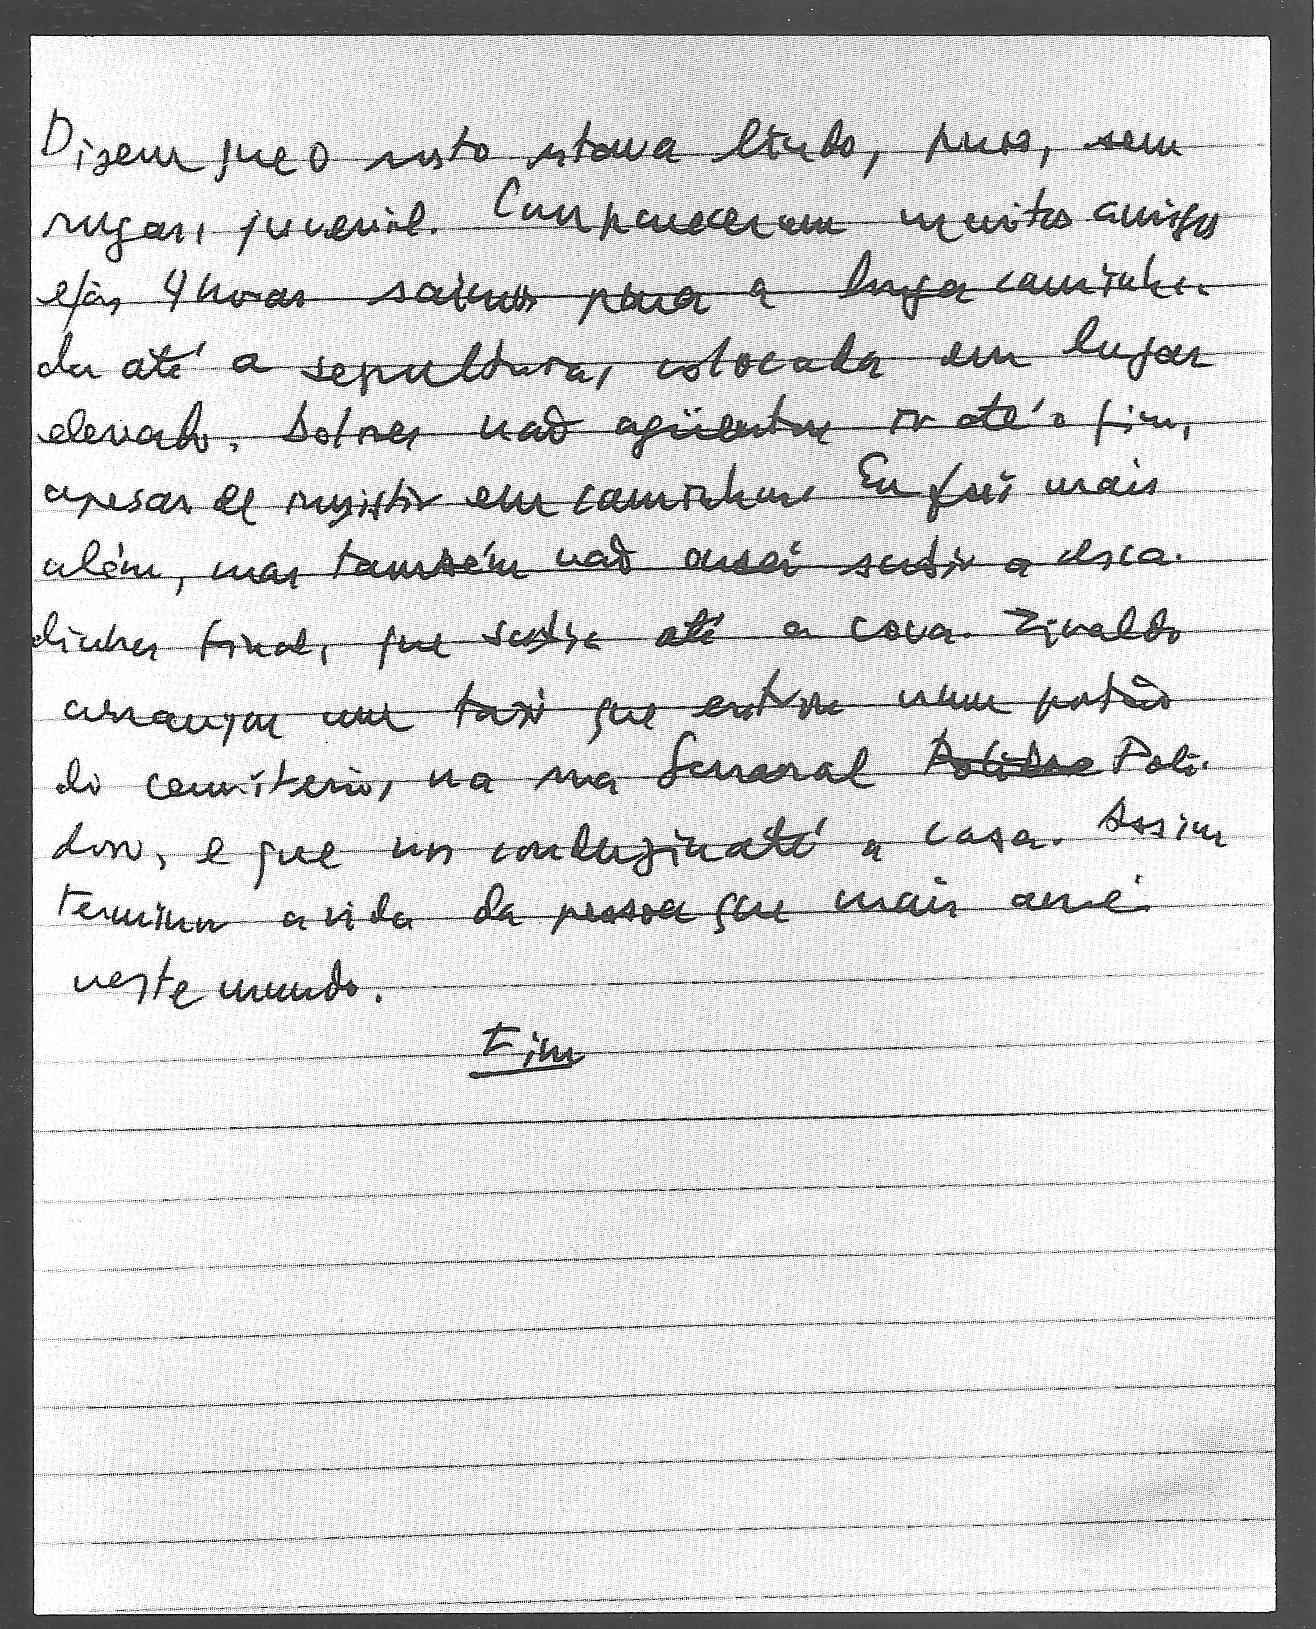 Dizem que o rosto estava lindo, puro, sem
rugas, juvenil. Compareceram muitos amigos
e, às 4 horas saímos para a longa caminha-
da até a sepultura, colocada em lugar
elevado. Dolores não agüentou ir até o fim,
apesar de insistir em caminhar. Eu fui mais
além, mas também não ousei subir a esca-
dinha final, que sobe até a cova. Zivaldo
arranjou um taxi que entrou num portão
do cemitério, na rua General Polidoro Poli-
doro, e que nos conduziu até a casa. Assim
terminou a vida da pessoa que mais amei
neste mundo.
Fim